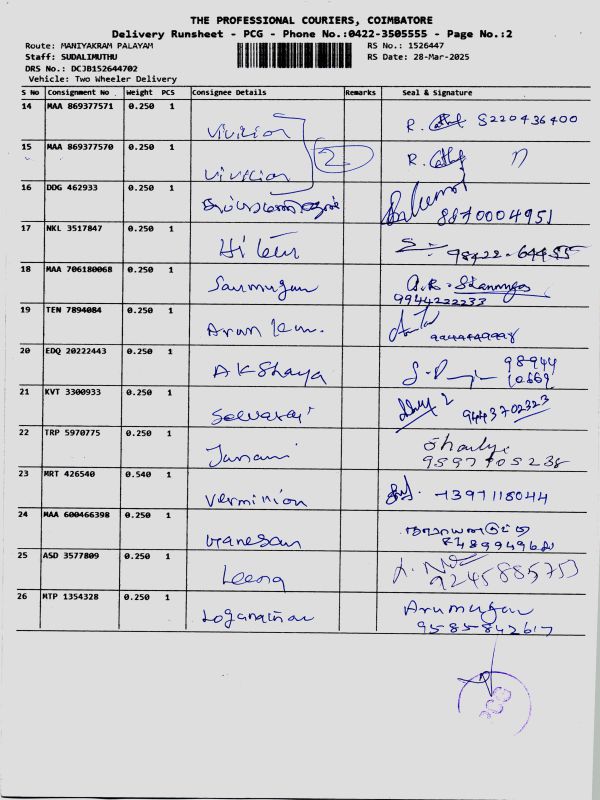 THE PROFESSIONAL COURIERS, COIMBATORE
Delivery Runsheet - PCG - Phone No.:0422-3505555 - Page No.:2
Route: MANIYAKRAM PALAYAM RS No.: 1526447
Staff: SUDALIMUTHU RS Date: 28-Mar-2025
DRS No.: DCJB152644702
Vehicle: Two Wheeler Delivery
S No Consignment No Weight PCS Consignee Details Remarks Seal & Signature
14 MAA 869377571 0.250 1 R. 8220436400
15 MAA 869377570 0.250 1 2 R.
16 DDG 462933 0.250 1 8870004951
17 NKL 3517847 0.250 1 98422-64455
18 MAA 706180068 0.250 1 Sanmugam
9944222233
19 TEN 7894084 0.250 1 Arun
20 EDQ 20222443 0.250 1 AKShaya 98944
10669
21 KVT 3300933 0.250 1 Selvaraj 9443702323
22 TRP 5970775 0.250 1 Janani
9597705238
23 MRT 426540 0.540 1 Verminion
24 MAA 600466398 0.250 1 Ganesan
25 ASD 3577809 0.250 1 Leena 9245885753
26 MTP 1354328 0.250 1 Loganathan Arumugam
9585842617
PCG